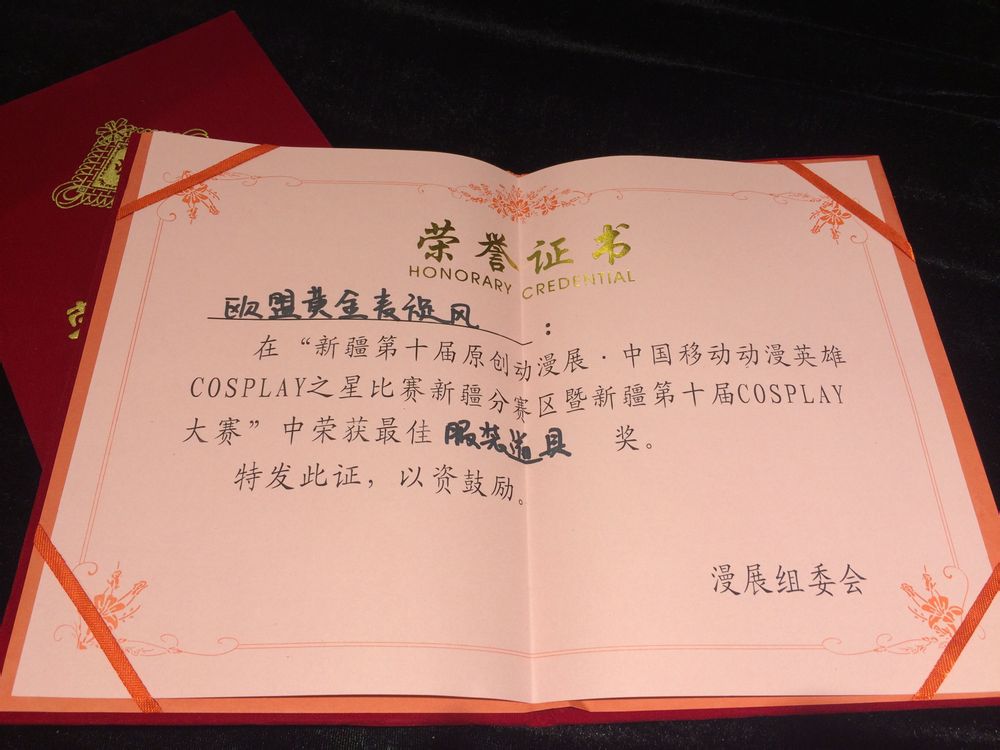 荣誉证书
HONORARY CREDENTIAL
欧盟黄金麦旋风：
在“新疆第十届原创动漫展·中国移动动漫英雄
COSPLAY之星比赛新疆分赛区暨新疆第十届COSPLAY
大赛”中荣获最佳服装道具奖。
特发此证，以资鼓励。
漫展组委会